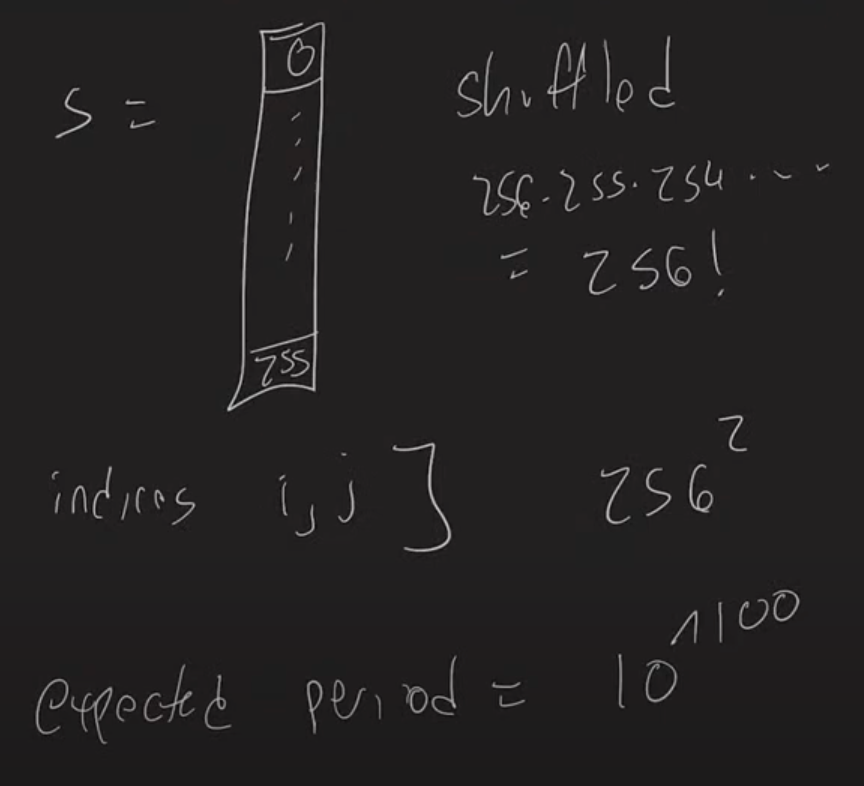 S = 0 shuffled
256·255·254...
= 256!
255
indices i, j ] 256²
expected period = 10^1100